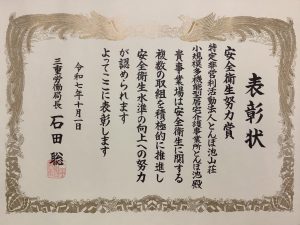 表彰状
安全衛生努力賞
特定非営利活動法人とんぼ池山荘
小規模多機能型居宅介護事業所とんぼ池殿
貴事業場は安全衛生に関する
複数の取組を積極的に推進し
安全衛生水準の向上への努力
が認められます
よってここに表彰します
令和七年十月一日
三重労働局長 石田聡